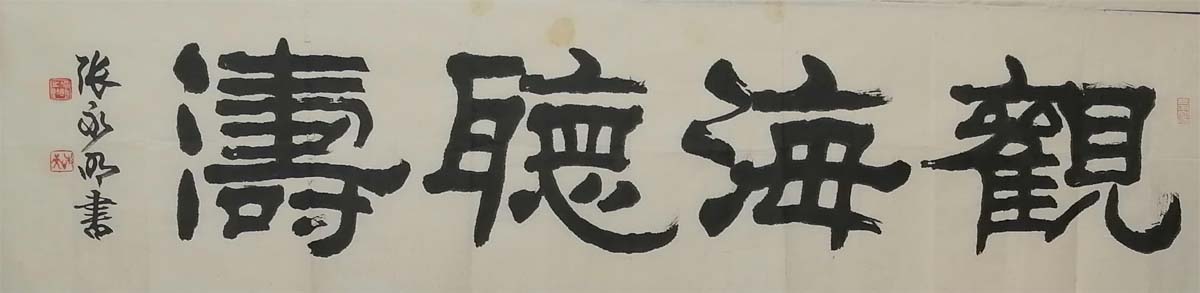 觀海聽濤
張永明書